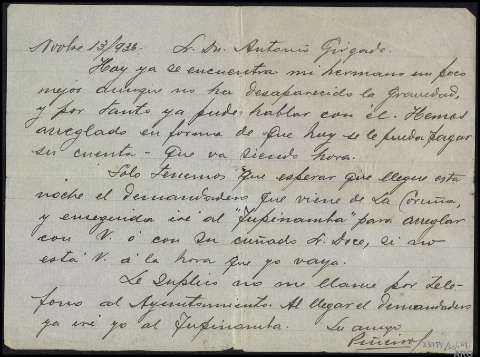 Novbre 13/936. Sr. Dn. Antonio Gigado.
Hoy ya se encuentra mi hermano un poco
mejor aunque no ha desaparecido la gravedad,
y por tanto ya pude hablar con él. Hemos
arreglado en forma de que hoy se le pueda pagar
su cuenta - que va siendo hora.
Solo tenemos que esperar que llegue esta
noche el demandadero que viene de La Coruña,
y enseguida iré al "Tupinamba" para arreglar
con V. ó con su cuñado Sr. Doce, si no
está V. á la hora que yo vaya.
Le suplico no me llame por telé-
fono al Ayuntamiento. Al llegar el demandadero
ya iré yo al Tupinamba. Su amigo
Piñeiro